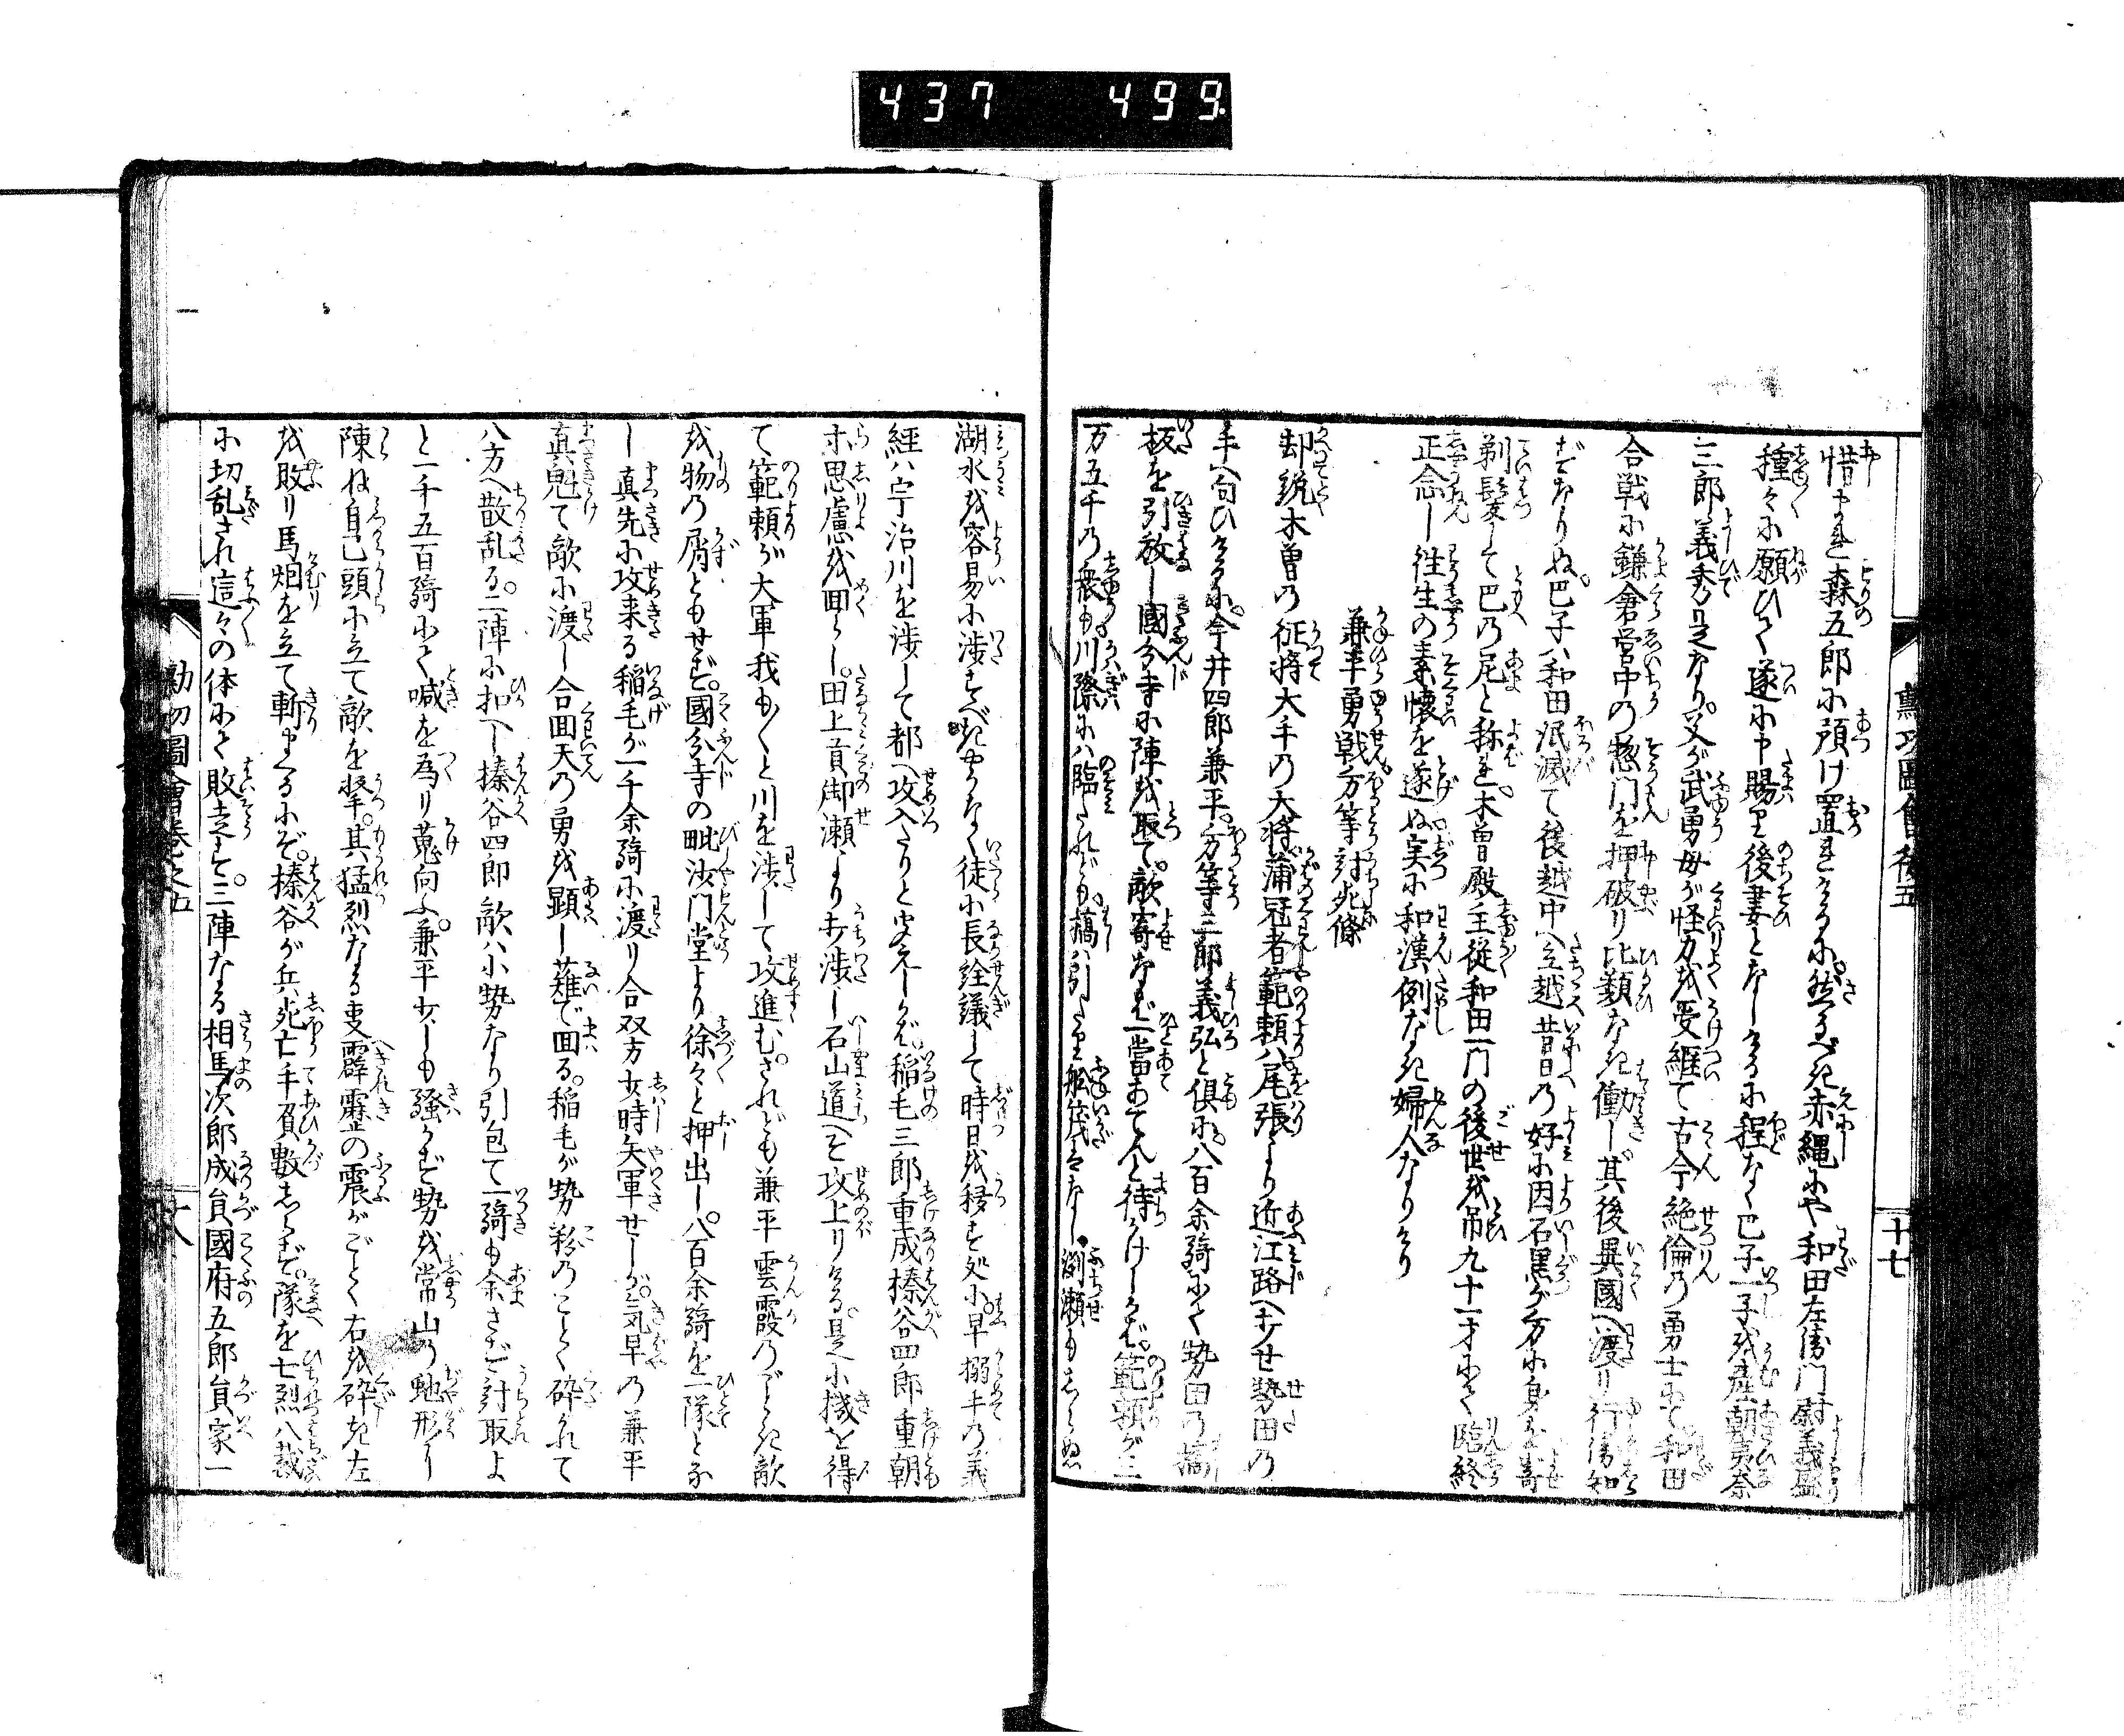 437 499.
勲功圖會後五
十七
惜まれ森五郎に預け置れけるに然るべき赤縄にや和田左衛門尉義盛
種々に願ひて遂に申賜り後妻となしけるに程なく巴子一子を産朝夷奈
三郎義秀是なり父が武勇母が怪力を受継て古今絶倫の勇士にて和田
合戦に鎌倉営中の惣門を押破り比類なき働し其後異國へ渡り行衛知
ずなりぬ巴子ハ和田泯滅て後越中へ立越昔日の好に因石黒が方に身を寄
剃髪して巴の尼と称れ木曽殿主従和田一門の後世を吊九十一才にて臨終
正念し往生の素懐を遂ぬ実に和漢例なき婦人なりけり
兼平勇戦方等討死條
却説木曽の征将大手の大将蒲冠者範頼ハ尾張より近江路へ打せ勢田の
手へ向ひけるに今井四郎兼平方等三郎義弘と倶に八百余騎にて勢田の橋
板を引放し國分寺に陣を取て敵寄なバ一當あてんと待けしかバ範頼が三
万五千の衆も川際にハ臨たれども橋ハ引たり舩筏ハなし渕瀬もしらぬ
湖水を容易に渉すべきやうなく徒に長詮議して時日を移す処に早搦手の義
經ハ宇治川を渉して都へ攻入たりと聞えしかバ稲毛三郎重成榛谷四郎重朝
ら思慮を回らし田上貢御瀬より打渉し石山道へと攻上りける是に機を得
て範頼が大軍我も〳〵と川を渉して攻進むされども兼平雲霞のごとき敵
を物の屑ともせず國分寺の毗沙门堂より徐々と押出し八百余騎を一隊とな
し真先に攻来る稲毛が一千余騎に渡り合双方少時矢軍せしが気早の兼平
真魁て敵に渡し合回天の勇を顕し薙で回る稲毛が勢粉のごとく砕かれて
八方へ散乱る二陣に扣へし榛谷四郎敵ハ小勢なり引包て一騎も余さず討取よ
と一千五百騎にて喊を為り蒐向ふ兼平少しも騒がず勢を常山の虵形に
陳ね自己頭に立て敵を撃其猛烈なる叓霹靂の震がごとく右を砕き左
を敗り馬烟を立て斬まくるにぞ榛谷が兵死亡手負數しらず隊を七烈八裁
に切乱され這々の体にて敗走す三陣なる相馬次郎成貟國府五郎貟家一
勲功圖會巻之五
十八